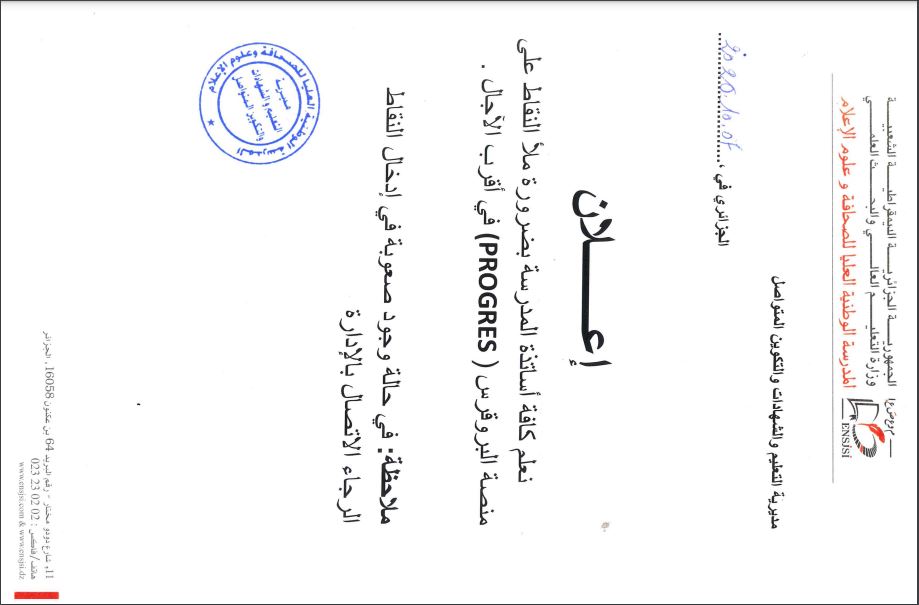 الجمهوريـــة الجزائريـــة الديمقراطيـــة الشعبيـــة
وزارة التعليـــم العالـــي والبحـــث العلمـــي
المدرسة الوطنية العليا للصحافة و علوم الإعلام
ENSJSI
مديرية التعليم والشهادات والتكوين المتواصل
الجزائر في ،
إعـــــلان
نعلم كافة أساتذة المدرسة بضرورة ملأ النقاط على
منصة البروقرس ( PROGRES) في أقرب الآجال .
ملاحظة: في حالة وجود صعوبة في إدخال النقاط
الرجاء الاتصال بالإدارة
المدرسة الوطنية العليا للصحافة وعلوم الإعلام
مديرية
التعليم والشهادات
والتكوين المتواصل
11، شارع دودو مختار - رقم البريد 64 بن عكنون 16058، الجزائر
هاتف/فاكس : 023 23 02 02
www.ensjsi.com & www.ensjsi.dz